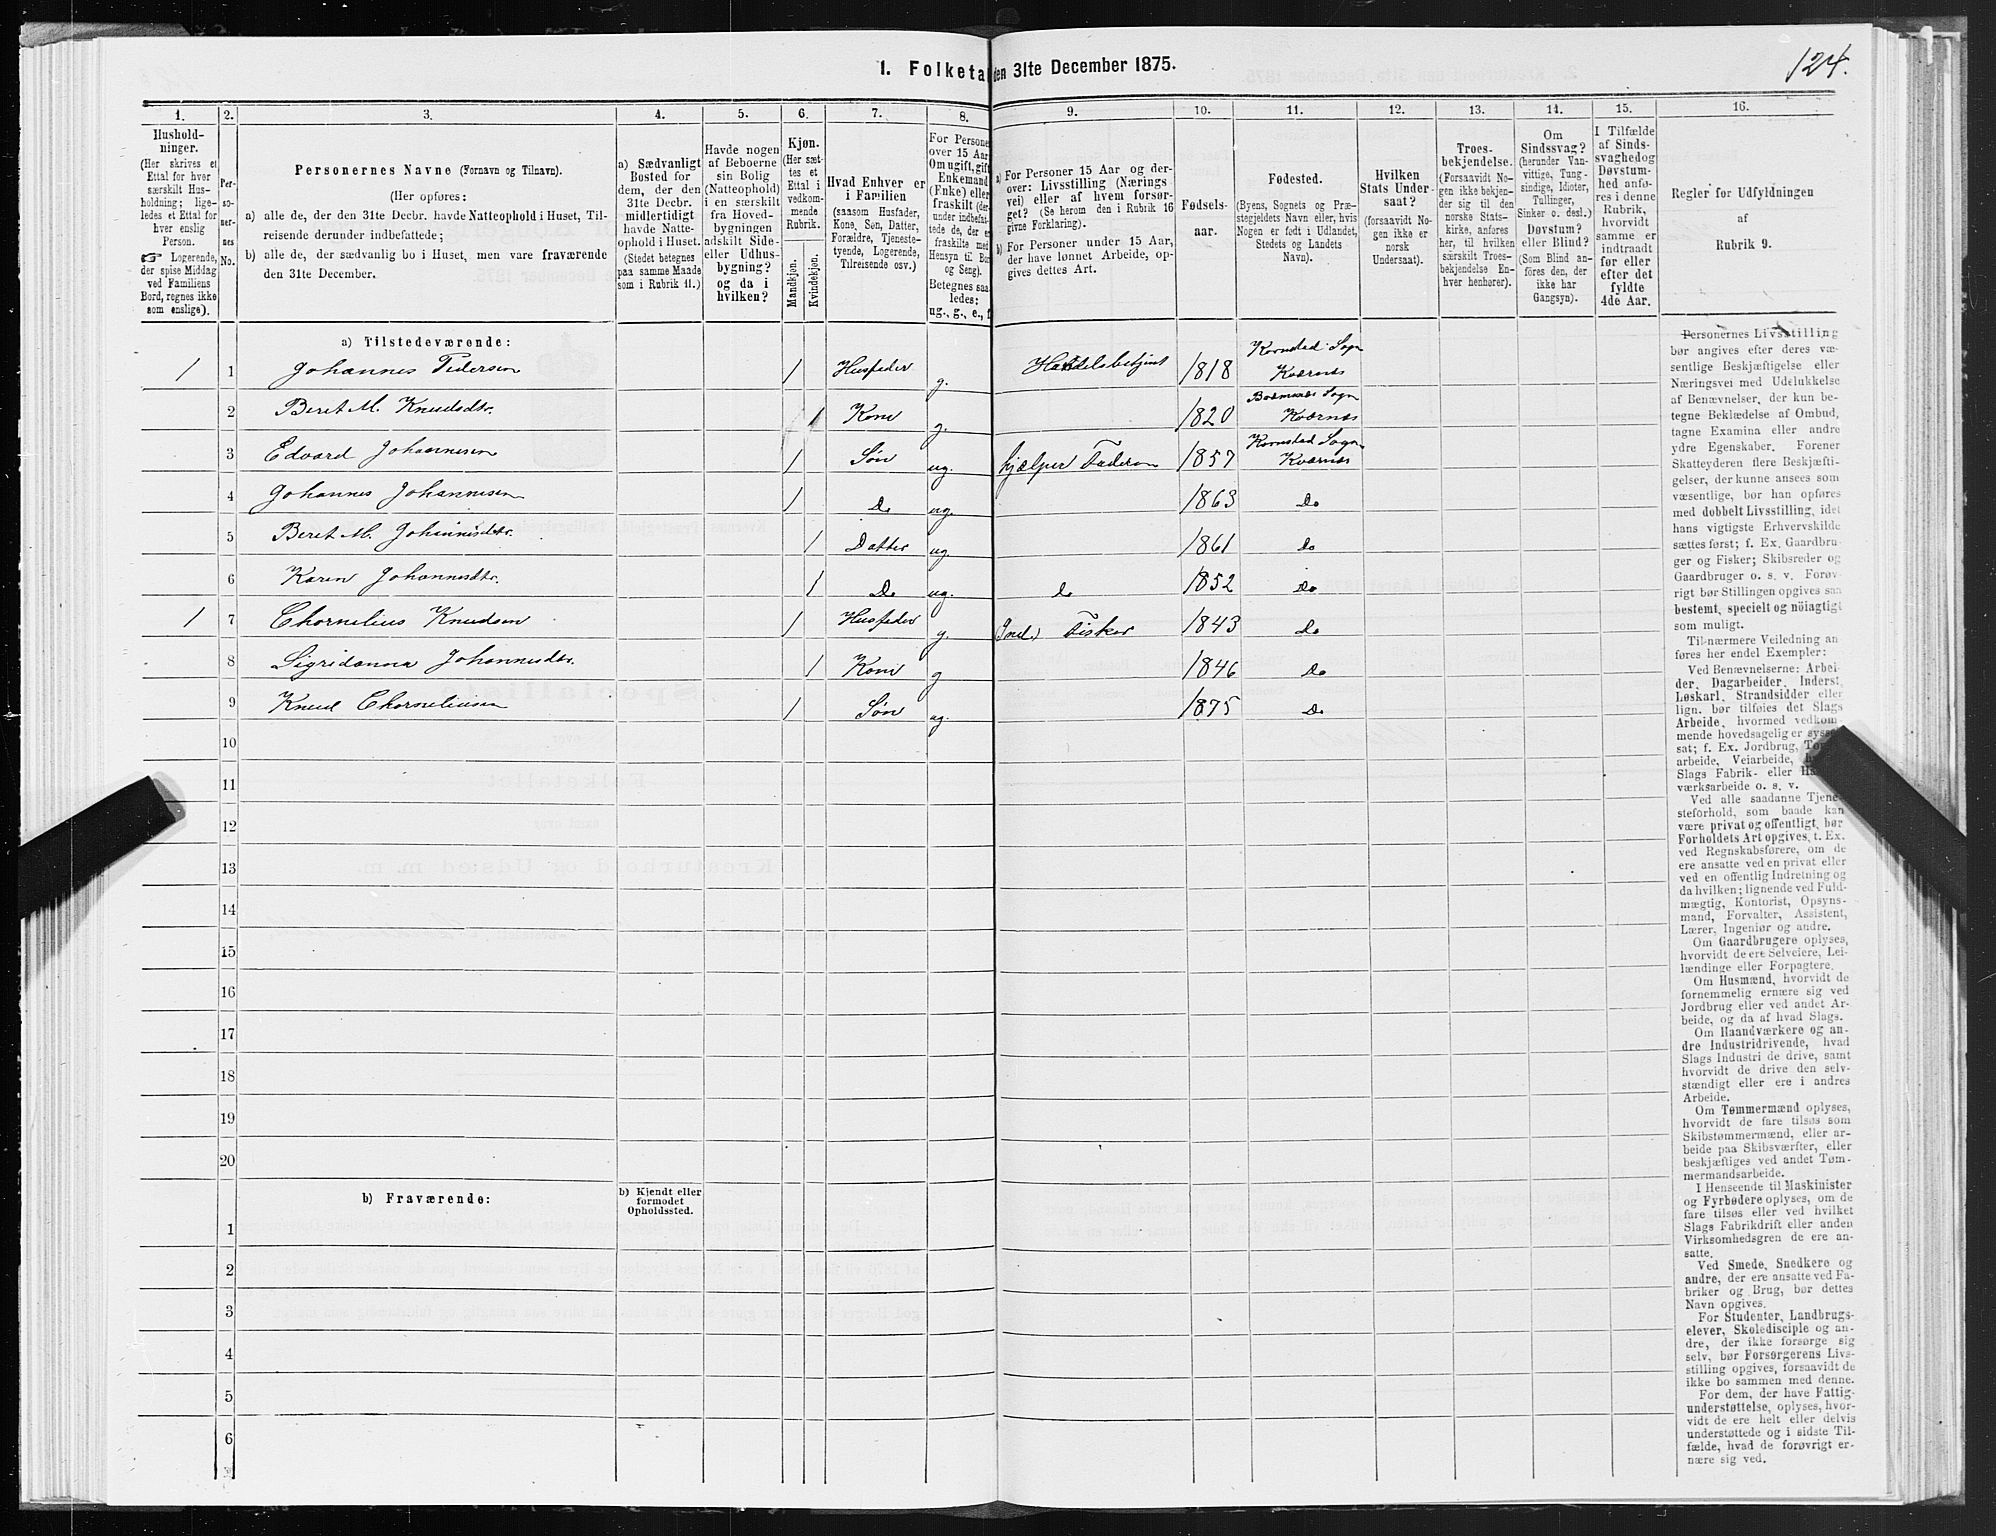 124.
1. Folketal den 31te December 1875.
1. 2. 3. 4. 5. 6. 7. 8. 9. 10. 11. 12. 13. 14. 15. 16.
Hushold-
ninger.
(Her skrives et
Ettal for hver
særskilt Hus-
holdning; lige-
ledes et Ettal for
hver enslig
Person.
☞ Logerende,
der spise Middag
ved Familiens
Bord, regnes ikke
som enslige).
Per-
so-
ner-
nes
No.
Personernes Navne (Fornavn og Tilnavn).
(Her opføres:
a) alle de, der den 31te Decbr. havde Natteophold i Huset, Til-
reisende derunder indbefattede;
b) alle de, der sædvanlig bo i Huset, men vare fraværende
den 31te December.
a) Sædvanligt
Bosted for
dem, der den
31te Decbr.
midlertidigt
havde Natte-
ophold i Huset.
(Stedet betegnes
paa samme Maade
som i Rubrik 11.)
Havde nogen
af Beboerne
sin Bolig
(Natteophold)
i en særskilt
fra Hoved-
bygningen
adskilt Side-
eller Udhus-
bygning?
og da i
hvilken?
Kjøn.
(Her sæt-
tes et
Ettal i
vedkom-
mende
Rubrik.
Mandkjøn.
Kvindekjøn.
Hvad Enhver er
i Familien
(saasom Husfader,
Kone, Søn, Datter,
Forældre, Tjeneste-
tyende, Logerende,
Tilreisende osv.)
For Persone
over 15 Aar
Om ugift, gift
Enkemand
(Enke) eller
fraskilt (der-
under indbefat-
tede de, der e
fraskilte med
Hensyn til Bo
og Seng).
Betegnes saa
ledes:
ug., g., e., f
a) For Personer 15 Aar og der-
over: Livsstilling (Nærings
vei) eller af hvem forsør-
get? (Se herom den i Rubrik 16
givne Forklaring).
b) For Personer under 15 Aar,
der have lønnet Arbeide, op-
gives dettes Art.
Fødsels-
aar.
Fødested.
(Byens, Sognets og Præ-
stegjeldets Navn eller, hvis
Nogen er født i Udlandet,
Stedets og Landets
Navn).
Hvilken
Stats Under-
saat?
(forsaavidt No-
gen ikke er
norsk
Undersaat).
Troes-
bekjendelse.
(Forsaavidt No-
gen ikke bekjen-
der sig til den
norske Stats-
kirke, anføres
her, til hvilken
særskilt Troes-
bekjendelse En-
hver henhører).
Om
Sindssvag?
(herunder Van-
vittige, Tung-
sindige, Idioter,
Tullinger,
Sinker o. desl.)
Døvstum?
eller Blind?
(Som Blind an-
føres den, der
ikke har
Gangsyn).
I Tilfælde
af Sinds-
svaghedog
Døvstum-
hed anfø-
res i denne
Rubrik,
hvorvidt
samme er
indtraadt
før eller
efter det
fyldte
4de Aar.
Regler for Udfyldningen
af
Rubrik 9.
a) Tilstedeværende:
1 1 Johannes Pedersen 1 Husfader g. Handelsbetjent 1818 Kornstad Sogn Kværnæs
2 Beret M. Knudsdtr. 1 Kone g. 1820 Kværnæs
3 Edvard Johannesen 1 Søn ug. hjælper Faderen 1857 Kornstad Sogn Kværnæs
4 Johannes Johannesen 1 Do ug. 1863 Do
5 Beret M. Johannesdtr. 1 Datter ug. 1861 Do
6 Karen Johannesdtr. 1 Do ug. do 1852 Do
1 7 Chornelius Knudsen 1 Husfader g. (Ind.) Fisker 1843 Do
8 Sigridanna Johannesdtr. 1 Kone g 1846 Do
9 Knud Chorneliusen 1 Søn ug. 1875 Do
10
11
12
13
14
15
16
17
18
19
20
b) Fraværende:
b) Kjendt eller
formodet
Opholdssted.
1
2
3
4
5
6
Personernes Livsstilling
bør angives efter deres væ-
sentlige Beskjæftigelse eller
Næringsvei med Udelukkelse
af Benævnelser, der kun be-
tegne Beklædelse af Ombud,
tagne Examina eller andre
ydre Egenskaber. Forener
Skatteyderen flere Beskjæfti-
gelser, der kunne ansees som
væsentlige, bør han opføres
med dobbelt Livsstilling, idet
hans vigtigste Erhvervskilde
sættes først; f. Ex. Gaardbru-
ger og Fisker; Skibsreder og
Gaardbruger o. s. v. Forøv-
rigt bør Stillingen opgives saa
bestemt, specielt og nöiagtigt
som muligt.
Til nærmere Veiledning an
føres her endel Exempler:
Ved Benævnelserne: Arbei-
der, Dagarbeider, Inderst,
Løskarl, Strandsidder eller
lign. bør tilføies det Slags
Arbeide, hvormed vedkom-
mende hovedsagelig er syssel
sat; f. Ex. Jordbrug,
arbeide, Veiarbeide,
Slags Fabrik- eller
værksarbeide o. s. v.
Ved alle saadanne Tjene-
steforhold, som baade kan
være privat og offentligt, bør
Forholdets Art opgives, t. Ex.
ved Regnskabsførere, om de
ere ansatte ved en privat eller
ved en offentlig Indretning og
da hvilken; lignende ved Fuld-
mægtig, Kontorist, Opsyns-
mand, Forvalter, Assistent,
Lærer, Ingeniør og andre.
Om Gaardbrugere oplyses,
hvorvidt de ere Selveiere, Lei-
lændinge eller Forpagtere.
Om Husmænd, hvorvidt de
fornemmelig ernære sig ved
Jordbrug eller ved andet Ar-
beide, og da af hvad Slags.
Om Haandværkere og an-
dre Industridrivende, hvad
Slags Industri de drive, samt
hvorvidt de drive den selv-
stændigt eller ere i andres
Arbeide.
Om Tømmermænd oplyses,
hvorvidt de fare tilsøs som
Skibstømmermænd, eller ar-
beide paa Skibsværfter, eller
beskjæftiges ved andet Tøm-
mermandsarbeide.
I Henseende til Maskinister
og Fyrbødere oplyses, om de
fare tilsøs eller ved hvilket
Slags Fabrikdrift eller anden
Virksomhedsgren de ere an-
satte.
Ved Smede, Snedkere og
andre, der ere ansatte ved Fa-
briker og Brug, bør dettes
Navn opgives.
For Studenter, Landbrugs-
elever, Skoledisciple og an-
dre, der ikke forsørge sig
selv, bør Forsørgerens Livs-
stilling opgives, forsaavidt de
ikke bo sammen med denne.
For dem, der have Fattig-
understøttelse, oplyses, hvor-
vidt de ere helt eller delvis
understøttede og i sidste Til-
fælde, hvad de forøvrigt er-
nære sig ved.